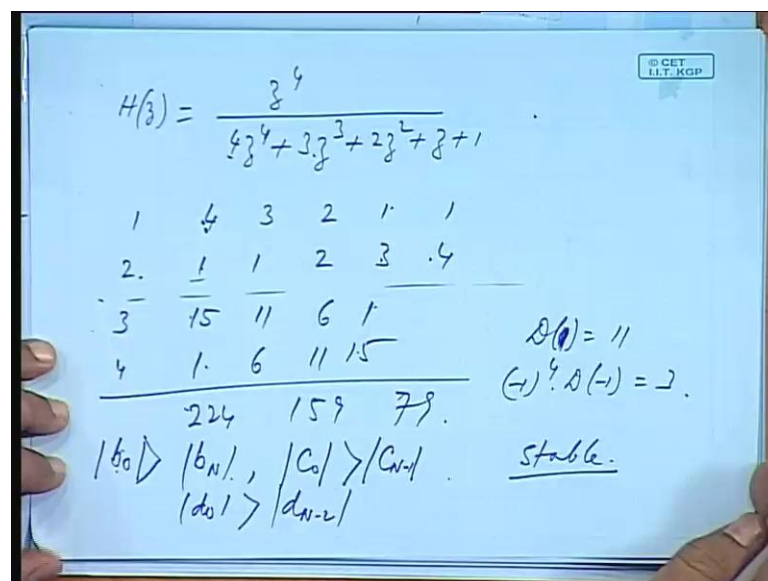 © CET
I.I.T. KGP
H(z) = z^4 / 4z^4 + 3z^3 + 2z^2 + z + 1
1 4 3 2 1 1
2. 1 1 2 3 4
3 15 11 6 1
4 1 6 11 15
224 159 79.
D(1) = 11
(-1)^4 . D(-1) = 3.
|b0| > |bN|, |C0| > |CN-1|.
|d0| > |dN-2|
stable.